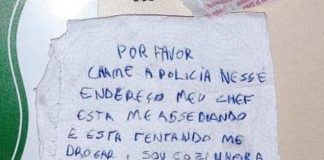 POR FAVOR
CHAME A POLICIA NESSE
ENDEREÇO MEU CHEF
ESTA ME ASSEDIANDO
E ESTA TENTANDO ME
DROGAR, SOU COZINHORA